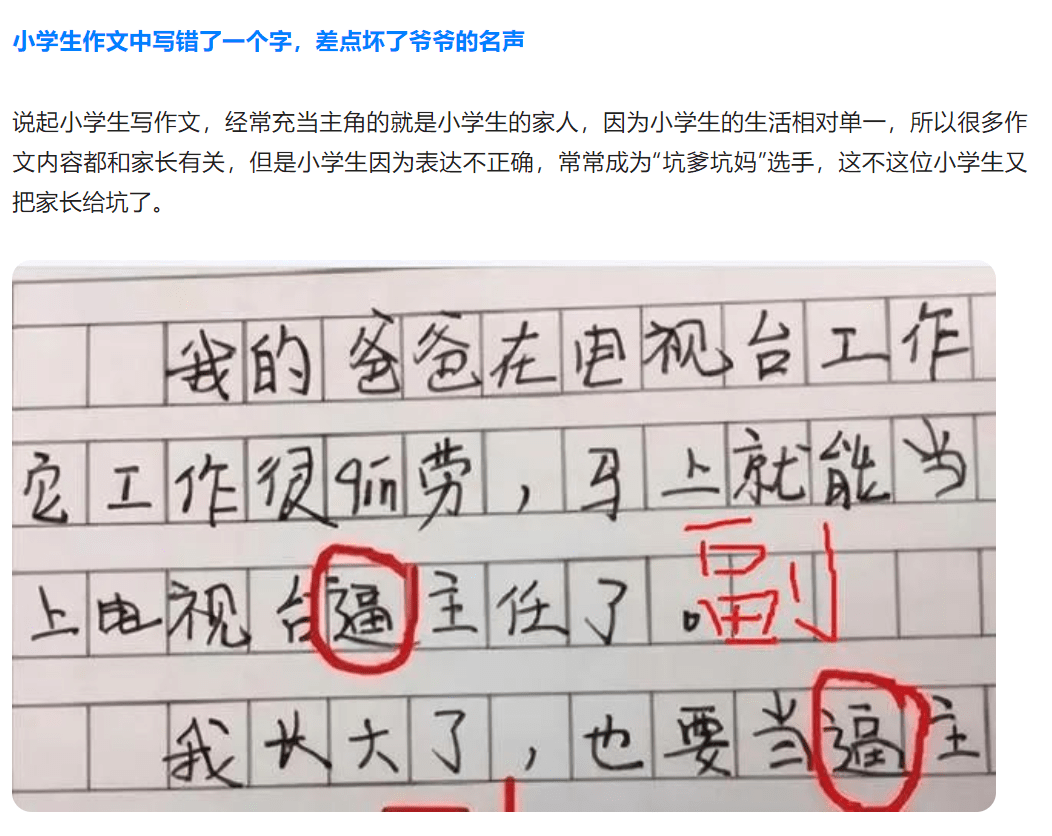 小学生作文中写错了一个字，差点坏了爷爷的名声
说起小学生写作文，经常充当主角的就是小学生的家人，因为小学生的生活相对单一，所以很多作
文内容都和家长有关，但是小学生因为表达不正确，常常成为“坑爹坑妈”选手，这不这位小学生又
把家长给坑了。
我的爸爸在电视台工作
它工作很qin劳，马上就能当
上电视台逼主任了.
副
我长大了，也要当逼主